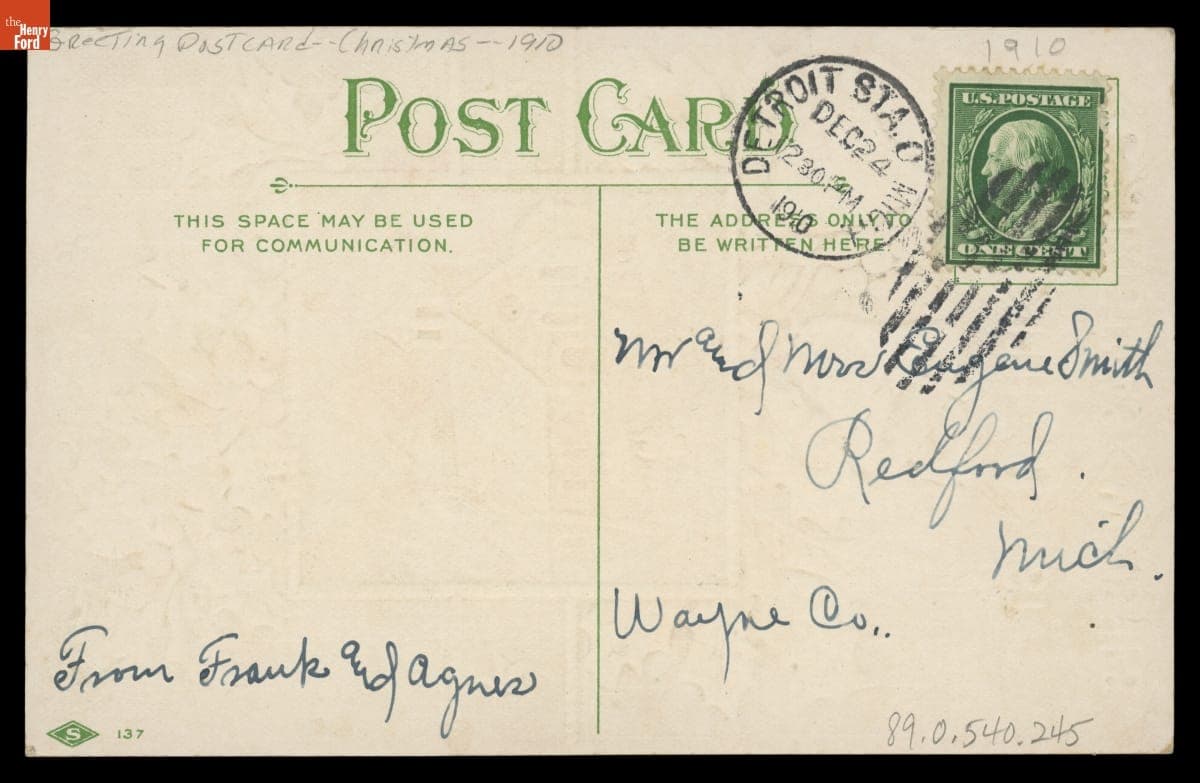 the
Henry
Ford
Greeting Postcard--Christmas--1910
1910
POST CARD
DETROIT STA. O MICH.
DEC 24
1230 PM
1910
U.S. POSTAGE
ONE CENT
THIS SPACE MAY BE USED
FOR COMMUNICATION.
THE ADDRESS ONLY TO
BE WRITTEN HERE.
Mr and Mrs Eugene Smith
Redford.
Mich.
Wayne Co.,
From Frank and Agnes
S 137
89.0.540.245